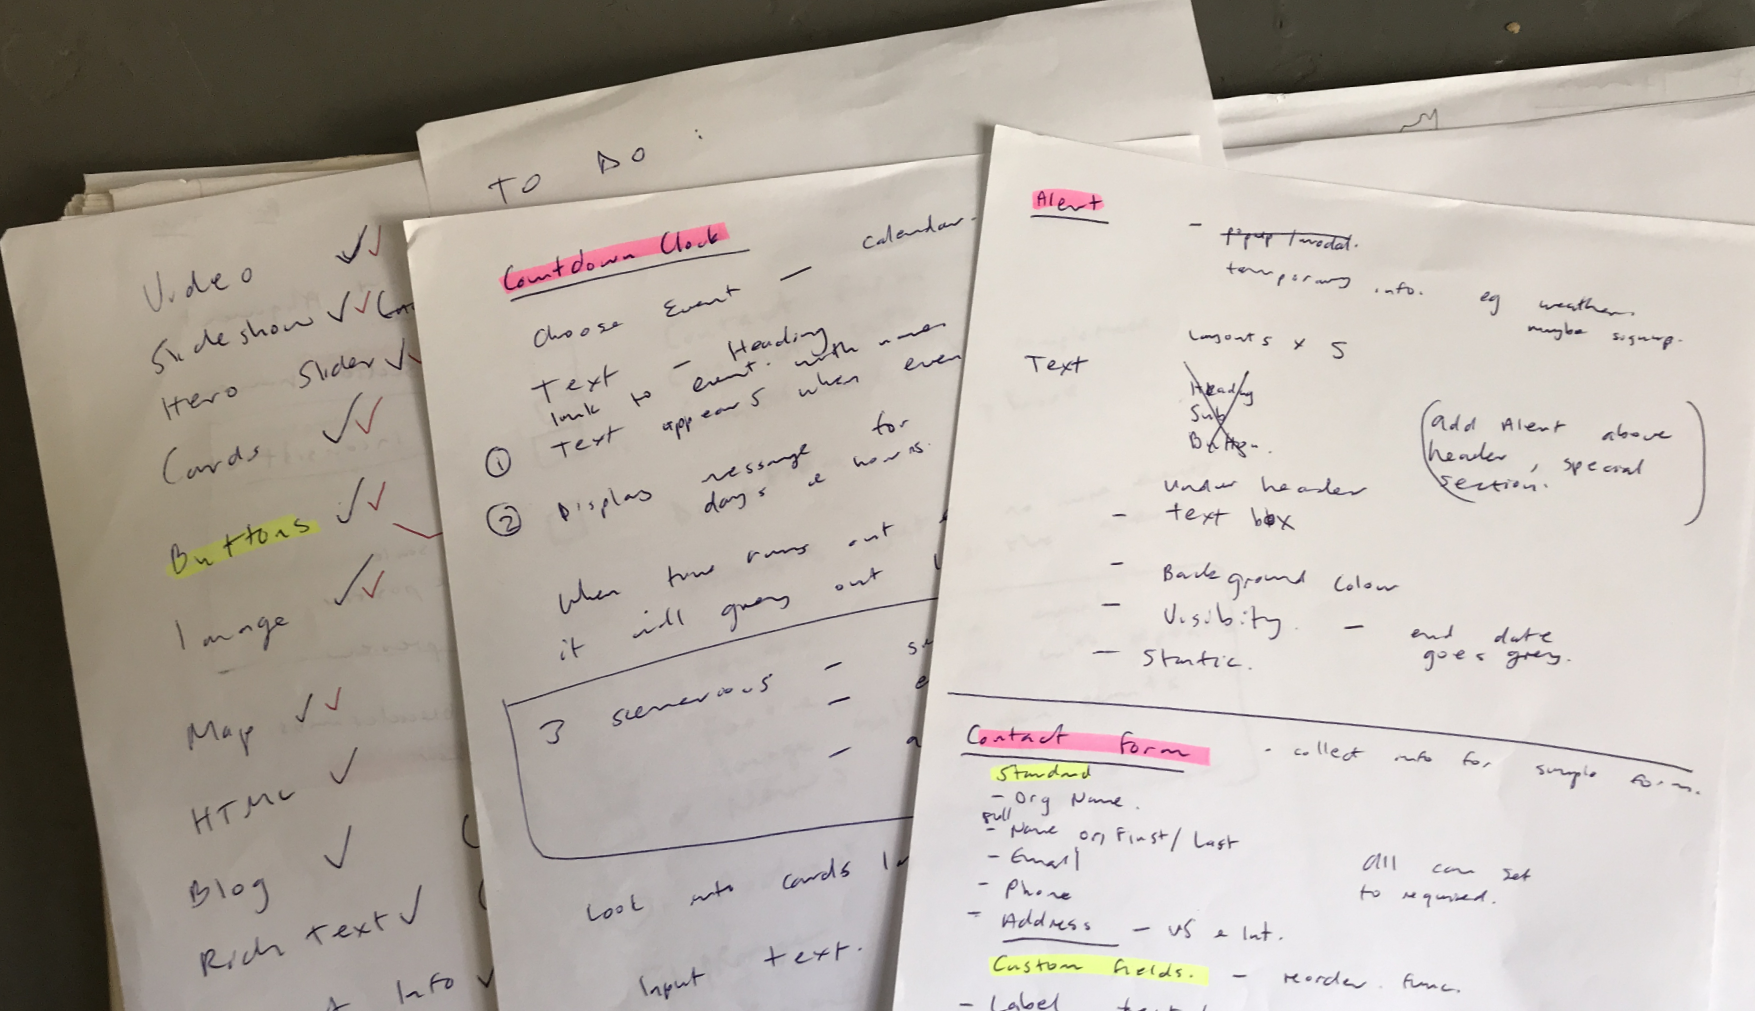 Video
Slideshow
Hero Slider
Cards
Buttons
Image
Map
HTML
Blog
Rich Text
Info
TO DO :
Countdown Clock
Choose Event — calendar
Text - Heading
link to event. with
① Text appears when
② Display message for
days & hours.
When time runs out
it will grey out
3 scenerious -
-
-
Look into cards
Input text.
Alert
- popup / modal.
temporary info. eg weather.
maybe signup.
Layouts x 5
Text
Heading
Sub
Button.
(add Alert above
header, special
section.)
under header
- text box
- Background Colour
- Visibity. - end date
goes grey.
- Static.
Contact Form - collect info for simple form.
Standard
- Org Name.
full
- Name or, First / Last
- Email
- Phone
- Address - US & Int.
All can set
to required.
Custom fields. - reorder. func.
- Label